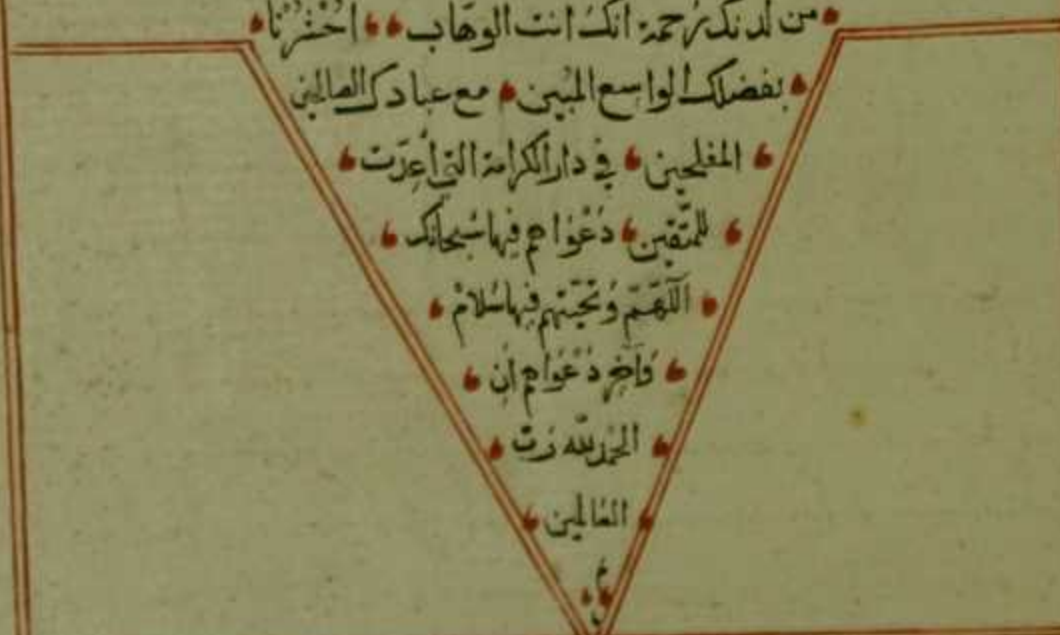 من لدنك رحمة انك انت الوهاب احشرنا
بفضلك الواسع المبين مع عبادك الصالحين
المفلحين في دار الكرامة التي أعدت
للمتقين دعواهم فيها سبحانك
اللهم وتحيتهم فيها سلام
وآخر دعواهم ان
الحمد لله رب
العالمين
م